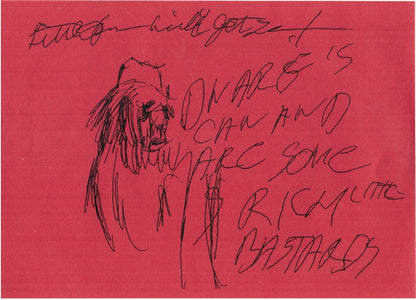 will get
DNARE'S
CAN AND
ARE SOME
RICH LITTLE
BASTARDS